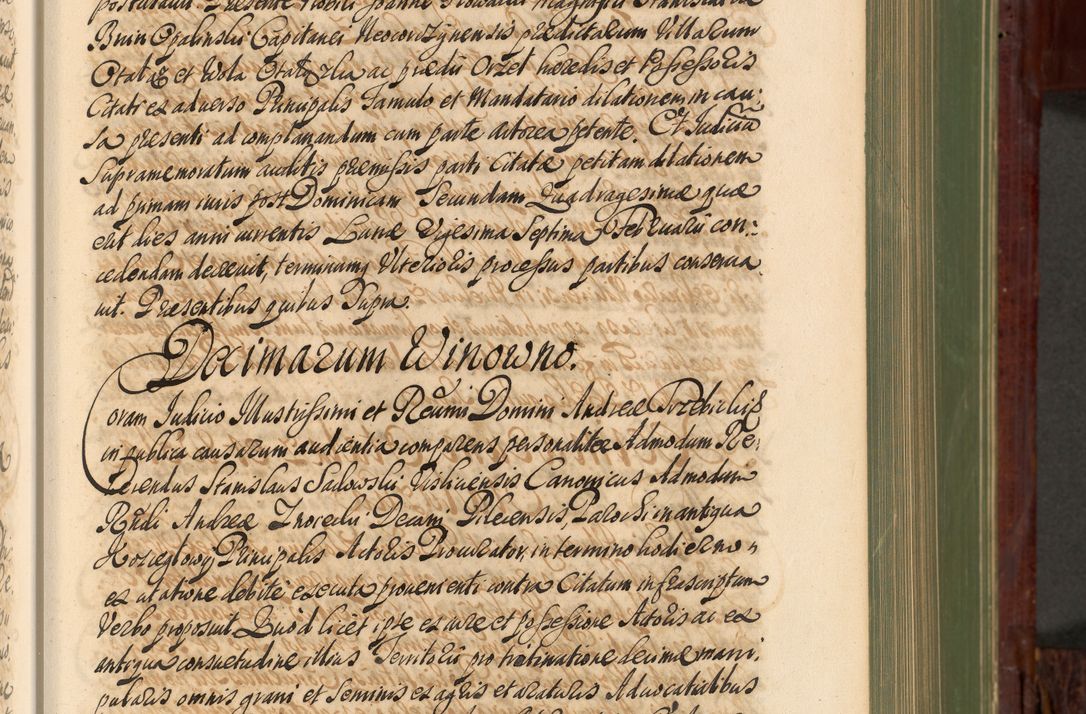 Bnin Opalinski Capitanei Neocorczynensis praedictarum Villarum
Otałąz et Wola Otałęzka ac praedii Orzel haeredis et Possessoris
Citati ex adverso Principalis Famulo et Mandatario dilationem in cau:
sa praesenti ad complanandum cum parte actorea petente. Et Judicium
Supramemoratum auditis praemissis parti Citatae petitam dilationem
ad primam iuris post Dominicam Secundam Quadragesimae quae
erit dies anni currentis Lunae Vigesima Septima Februarii con:
cedendam decrevit, terminumq Ulterioris processus partibus conserva
vit. Praesentibus quibus Supra.
Decimarum Winowno.
Coram Judicio Illustrissimi et Reverendissimi Domini Andreae Trzebicki
in publica causarum audientia comparens personaliter Admodum Re:
verendus Stanislaus Sadowski Visliciensis Canonicus Admodum
Rndi Andreae Decani Pilecensis, Parochi in antiqua
Koziegłowy Principalis Actoris Procurator in termino hodierno
ex citatione debite executa provenienti contra Citatum infrascriptum
Verbo proposuit. Quod licet ipse ex iure et possessione Actoris ac ex
antiqua consuetudine illius Territorii pro decimae mani:
pularis omnis grani et Seminis ex agris et araturis Advocatialibus